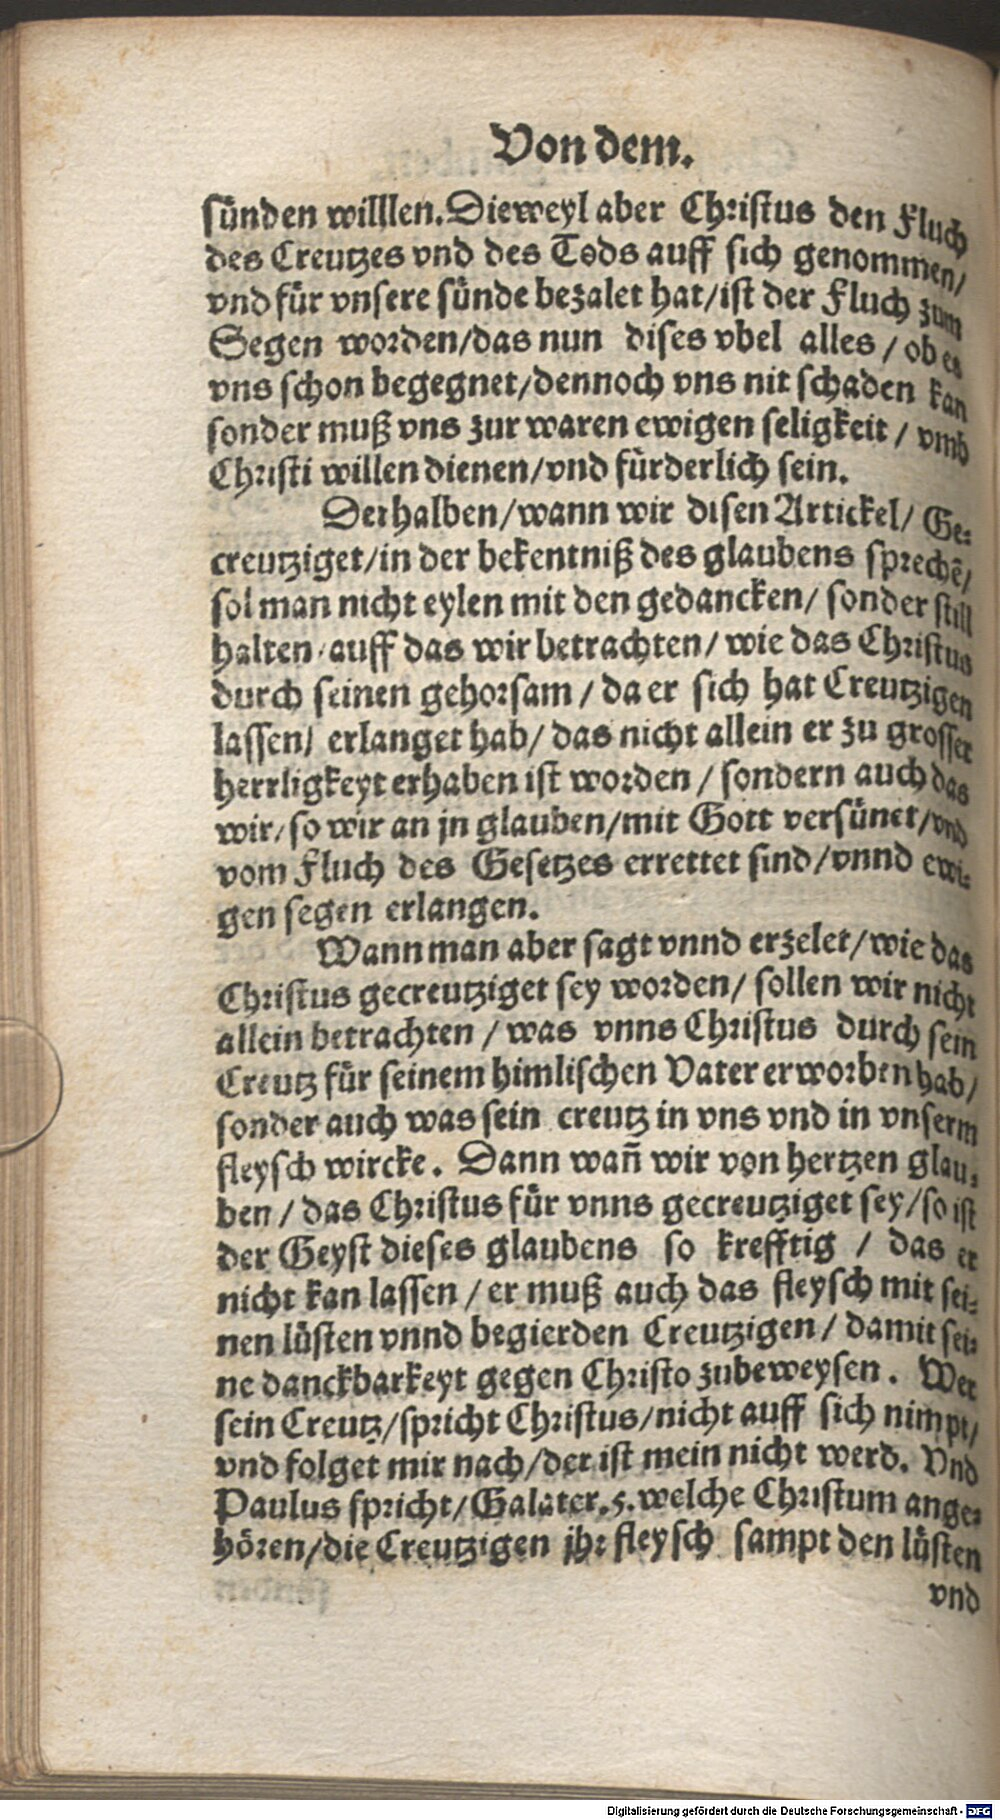 Von dem.
sünden willlen. Dieweyl aber Christus den Fluch
des Creutzes vnd des Tods auff sich genommen/
vnd für vnsere sünde bezalet hat/ist der Fluch zum
Segen worden/das nun dises vbel alles / ob es
vns schon begegnet/dennoch vns nit schaden kan
sonder muß vns zur waren ewigen seligkeit / vmb
Christi willen dienen/vnd fürderlich sein.
Derhalben/wann wir disen Artickel/ Ge-
creutziget/in der bekentniß des glaubens sprechē/
sol man nicht eylen mit den gedancken/ sonder still
halten/auff das wir betrachten/ wie das Christus
durch seinen gehorsam / da er sich hat Creutzigen
lassen/ erlanget hab/ das nicht allein er zu grosser
herrligkeyt erhaben ist worden / sondern auch das
wir/so wir an jn glauben/mit Gott versünet/vnd
vom Fluch des Gesetzes errettet sind/vnnd ewi-
gen segen erlangen.
Wann man aber sagt vnnd erzelet/wie das
Christus gecreutziget sey worden/ sollen wir nicht
allein betrachten / was vnns Christus durch sein
Creutz für seinem himlischen Vater erworben hab/
sonder auch was sein creutz in vns vnd in vnserm
fleysch wircke. Dann wañ wir von hertzen glau-
ben / das Christus für vnns gecreutziget sey/so ist
der Geyst dieses glaubens so krefftig / das er
nicht kan lassen / er muß auch das fleysch mit sei-
nen lüsten vnnd begierden Creutzigen / damit sei-
ne danckbarkeyt gegen Christo zubeweysen. Wer
sein Creutz/spricht Christus/nicht auff sich nimpt/
vnd folget mir nach/der ist mein nicht werd. Vnd
Paulus spricht/Galater.5.welche Christum ange-
hören/die Creutzigen jhr fleysch sampt den lüsten
vnd
Digitalisierung gefördert durch die Deutsche Forschungsgemeinschaft - DFG